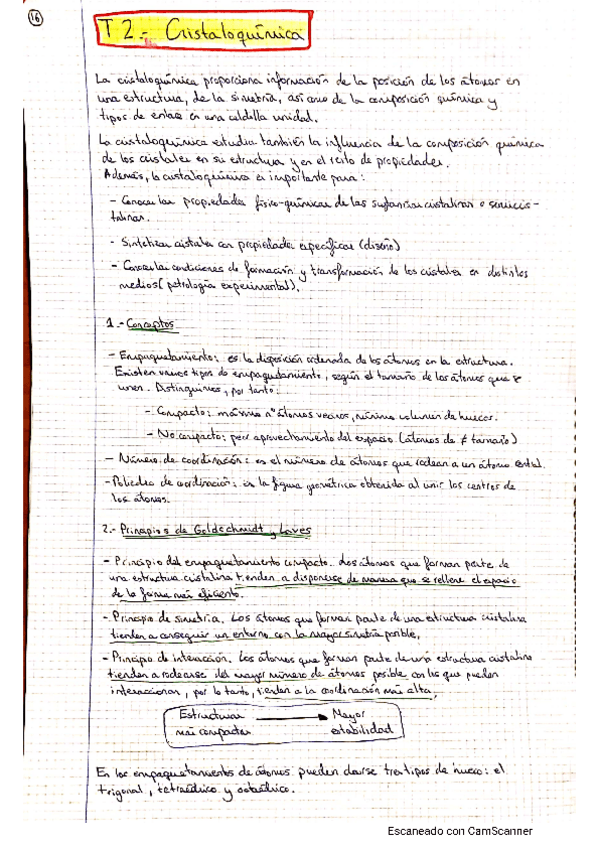 16
T 2.- Cristaloquímica
La cristaloquímica proporciona información de la posición de los átomos en
una estructura, de la simetría, así como de la composición química y
tipos de enlace en una celdilla unidad.
La cristaloquímica estudia también la influencia de la composición química
de los cristales en su estructura y en el resto de propiedades.
Además, la cristaloquímica es importante para:
- Conocer las propiedades físico-químicas de las sustancias cristalinas o semicris-
talinas.
- Sintetizar cristales con propiedades específicas (diseño)
- Conocer las condiciones de formación y transformación de los cristales en distintos
medios (petrología experimental).
1.- Conceptos
- Empaquetamiento: es la disposición ordenada de los átomos en la estructura.
Existen varios tipos de empaquetamiento, según el tamaño de los átomos que se
unen. Distinguimos, por tanto:
- Compacto: máximo nº átomos vecinos, mínimo volumen de huecos.
- No compacto: peor aprovechamiento del espacio (átomos de ≠ tamaño)
- Número de coordinación: es el número de átomos que rodean a un átomo central.
- Poliedro de coordinación: es la figura geométrica obtenida al unir los centros de
los átomos.
2.- Principios de Goldschmidt y Laves
- Principio del empaquetamiento compacto. Los átomos que forman parte de
una estructura cristalina tienden a disponerse de manera que se rellene el espacio
de la forma más eficiente.
- Principio de simetría. Los átomos que forman parte de una estructura cristalina
tienden a conseguir un entorno con la mayor simetría posible.
- Principio de interacción. Los átomos que forman parte de una estructura cristalina
tienden a rodearse del mayor número de átomos posible con los que pueden
interaccionar, por lo tanto, tienden a la coordinación más alta.
Estructuras → Mayor
más compactas estabilidad
En los empaquetamientos de átomos pueden darse tres tipos de hueco: el
trigonal, tetraédrico y octaédrico.
Escaneado con CamScanner